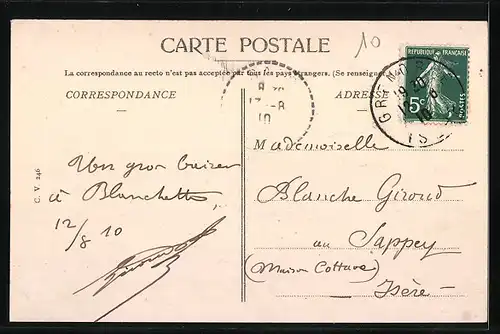 CARTE POSTALE
10
La correspondance au recto n'est pas acceptée par tous les pays étrangers. (Se renseigner
CORRESPONDANCE
ADRESSE
REPUBLIQUE FRANÇAISE
5c
POSTES
19 30
8
10
Mademoiselle
Un gros baiser
à Blanchette
12/8 10
C. V. 246
Blanche Giroud
au Sappey
(Maison Cottave)
Isère